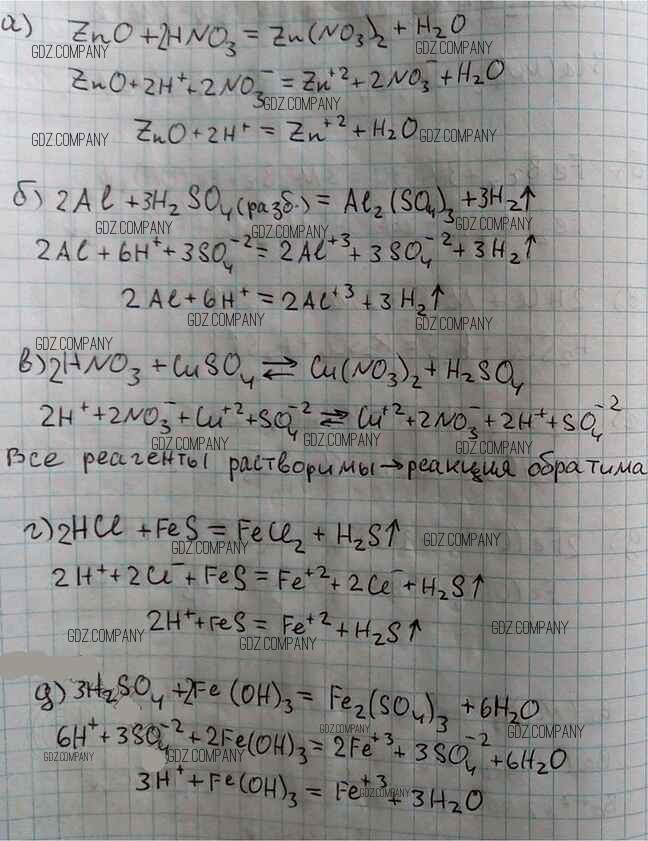 а) ZnO + 2HNO₃ = Zn(NO₃)₂ + H₂O
GDZ.COMPANY GDZ.COMPANY
ZnO + 2H⁺ + 2NO₃⁻ = Zn⁺² + 2NO₃⁻ + H₂O
GDZ.COMPANY
ZnO + 2H⁺ = Zn⁺² + H₂O
GDZ.COMPANY GDZ.COMPANY
б) 2Al + 3H₂SO₄(разб.) = Al₂(SO₄)₃ + 3H₂↑
GDZ.COMPANY GDZ.COMPANY GDZ.COMPANY
2Al + 6H⁺ + 3SO₄⁻² = 2Al⁺³ + 3SO₄⁻² + 3H₂↑
2Al + 6H⁺ = 2Al⁺³ + 3H₂↑
GDZ.COMPANY GDZ.COMPANY
GDZ.COMPANY
в) 2HNO₃ + CuSO₄ ⇄ Cu(NO₃)₂ + H₂SO₄
2H⁺ + 2NO₃⁻ + Cu⁺² + SO₄⁻² ⇄ Cu⁺² + 2NO₃⁻ + 2H⁺ + SO₄⁻²
GDZ.COMPANY GDZ.COMPANY GDZ.COMPANY
Все реагенты растворимы → реакция обратима
г) 2HCl + FeS = FeCl₂ + H₂S↑
GDZ.COMPANY GDZ.COMPANY
2H⁺ + 2Cl⁻ + FeS = Fe⁺² + 2Cl⁻ + H₂S↑
2H⁺ + FeS = Fe⁺² + H₂S↑
GDZ.COMPANY GDZ.COMPANY GDZ.COMPANY
д) 3H₂SO₄ + 2Fe(OH)₃ = Fe₂(SO₄)₃ + 6H₂O
GDZ.COMPANY GDZ.COMPANY
6H⁺ + 3SO₄⁻² + 2Fe(OH)₃ = 2Fe⁺³ + 3SO₄⁻² + 6H₂O
GDZ.COMPANY GDZ.COMPANY
3H⁺ + Fe(OH)₃ = Fe⁺³ + 3H₂O
GDZ.COMPANY